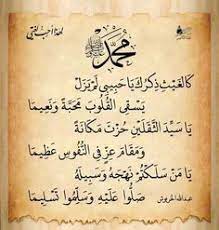 محمد ﷺ
كَالغَيْثِ ذِكْرُكَ يَا حَبِيبِي لَمْ يَزَلْ
يَسْقِي القُلُوبَ مَحَبَّةً وَنَعِيمَا
يَا سَيِّدَ الثَّقَلَيْنِ حُزْتَ مَكَانَةً
وَمَقَامَ عِزٍّ فِي النُّفُوسِ عَظِيمَا
يَا مَنْ سَلَكْتُمْ نَهْجَهُ وَسَبِيلَهُ
صَلُّوا عَلَيْهِ وَسَلِّمُوا تَسْلِيمَا
عبدالله